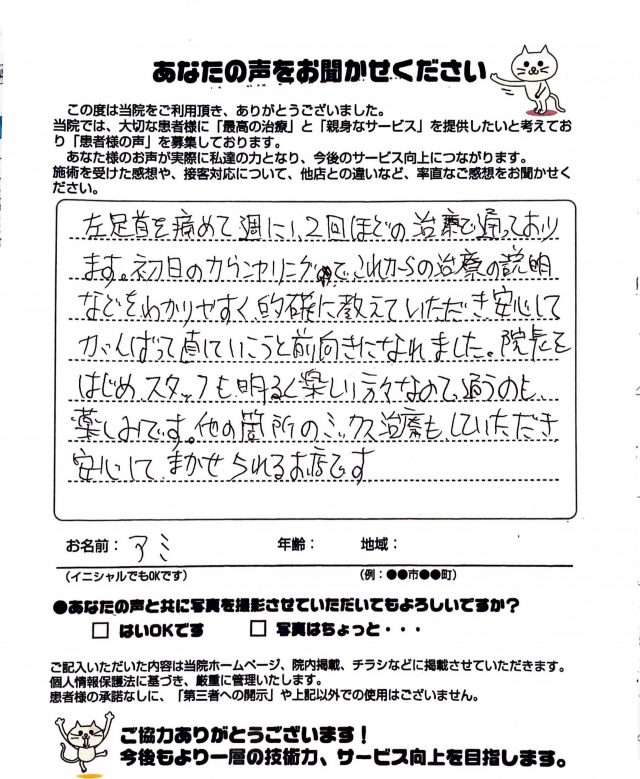 あなたの声をお聞かせください
この度は当院をご利用頂き、ありがとうございました。
当院では、大切な患者様に「最高の治療」と「親身なサービス」を提供したいと考えてお
り「患者様の声」を募集しております。
あなた様のお声が実際に私達の力となり、今後のサービス向上につながります。
施術を受けた感想や、接客対応について、他店との違いなど、率直なご感想をお聞かせく
ださい。
左足首を痛めて週に1、2回ほどの治療で通っており
ます。初日のカウンセリングで、これからの治療の説明
などをわかりやすく的確に教えていただき安心して
がんばって直していこうと前向きになれました。院長を
はじめスタッフも明るく楽しい方々なので、通うのも、
楽しみです。他の箇所のミックス治療もしていただき
安心して まかせられるお店です
お名前： アミ 年齢： 地域：
（イニシャルでもOKです） （例：●●市●●町）
●あなたの声と共に写真を撮影させていただいてもよろしいですか？
□ はいOKです □ 写真はちょっと・・・
ご記入いただいた内容は当院ホームページ、院内掲載、チラシなどに掲載させていただきます。
個人情報保護法に基づき、厳重に管理いたします。
患者様の承諾なしに、「第三者への開示」や上記以外での使用はございません。
ご協力ありがとうございます！
今後もより一層の技術力、サービス向上を目指します。